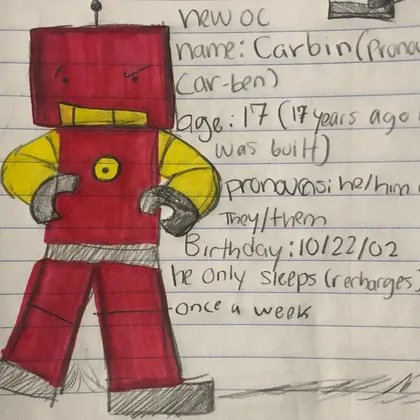 new oc
name: Carbin (pronou
Car-ben)
age: 17 (17 years ago
was built)
pronouns: he/him
They/them
Birthday: 10/22/02
he only sleeps (recharges)
once a week